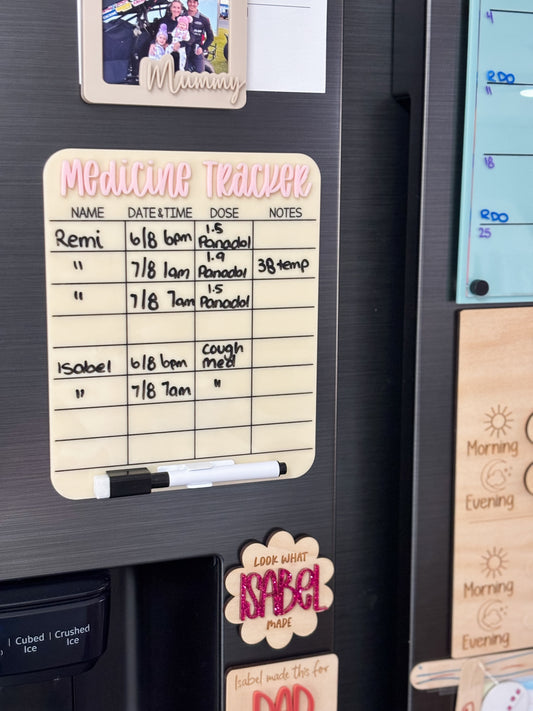 Mummy
Medicine Tracker
NAME DATE&TIME DOSE NOTES
Remi 6/8 6pm 1.5 Panadol
" 7/8 1am 1.9 Panadol 38 temp
" 7/8 7am 1.5 Panadol
Isabel 6/8 6pm cough med
" 7/8 7am "
4
RDO
11
18
RDO
25
Morning
Evening
Morning
Evening
Cubed Ice
Crushed Ice
LOOK WHAT
ISABEL
MADE
Isabel made this for
DAD